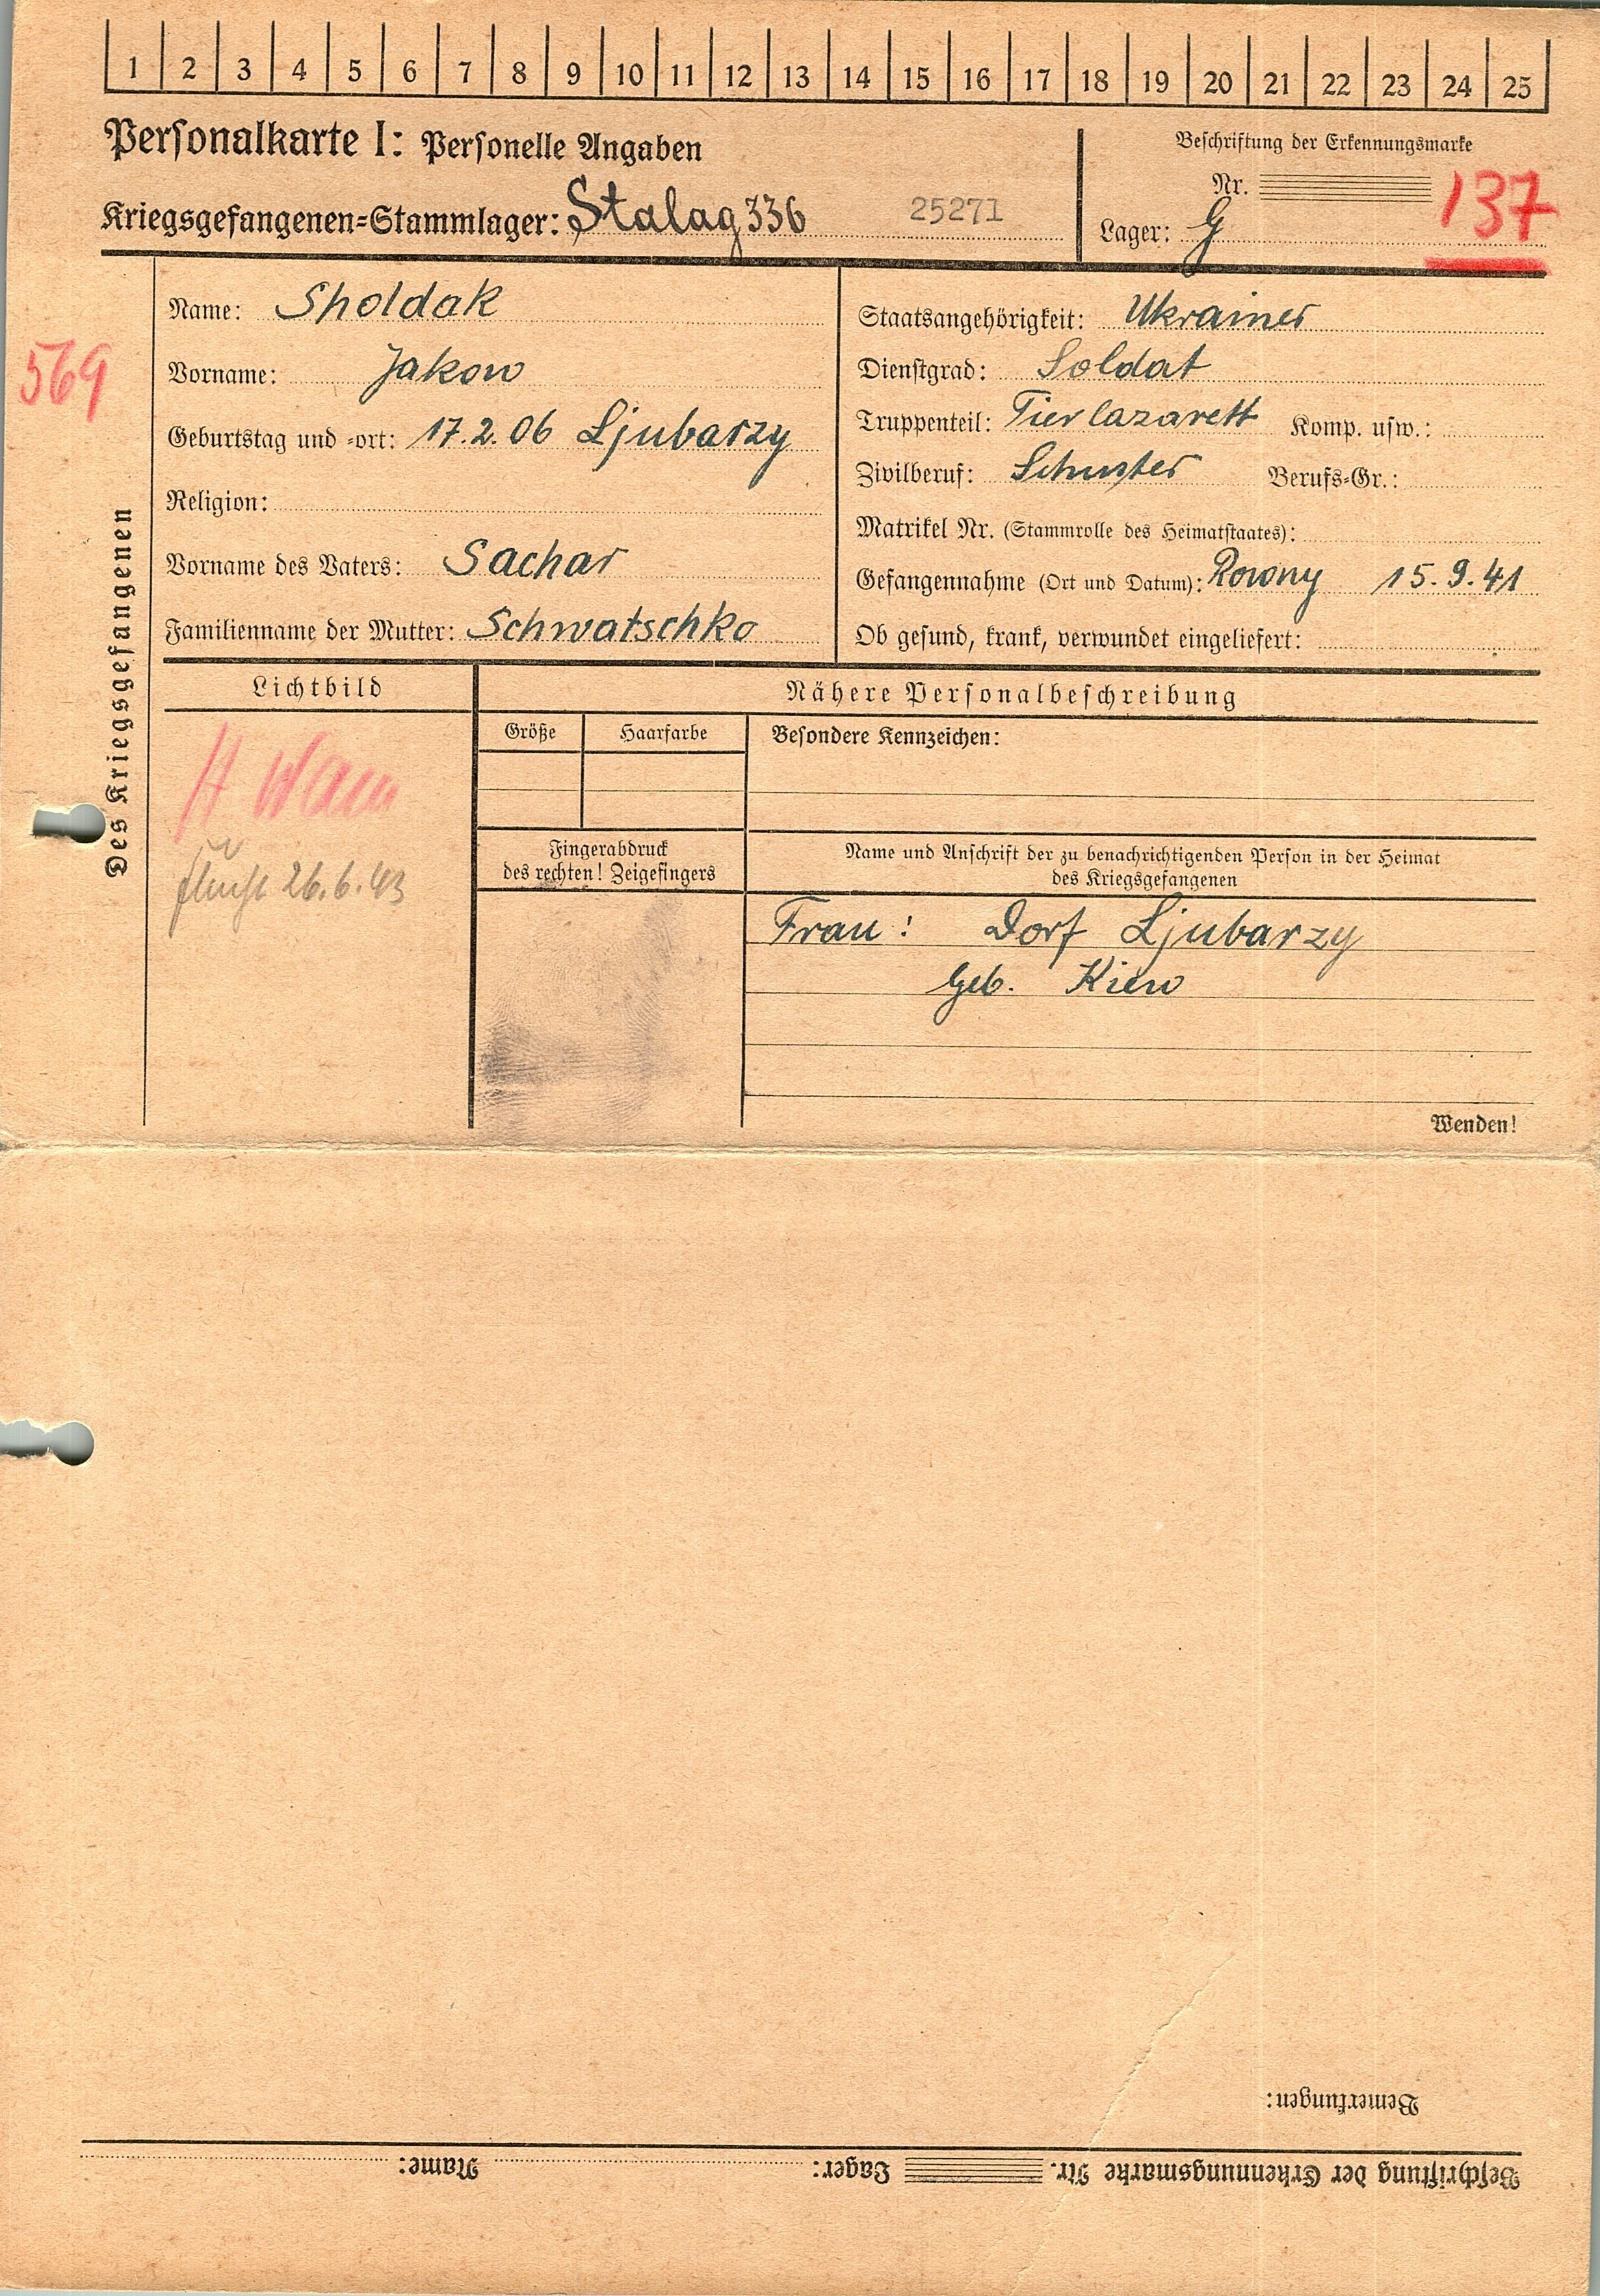 1 2 3 4 5 6 7 8 9 10 11 12 13 14 15 16 17 18 19 20 21 22 23 24 25
Personalkarte I: Personelle Angaben
Beschriftung der Erkennungsmarke
Nr. 137
Kriegsgefangenen-Stammlager: Stalag 336 25271
Lager: G
569
Des Kriegsgefangenen
Name: Sholdak
Vorname: Jakow
Geburtstag und -ort: 17.2.06 Ljubarzy
Religion:
Vorname des Vaters: Sachar
Familienname der Mutter: Schwatschko
Staatsangehörigkeit: Ukrainer
Dienstgrad: Soldat
Truppenteil: Tierlazarett Komp. usw.:
Zivilberuf: Schuster Berufs-Gr.:
Matrikel Nr. (Stammrolle des Heimatstaates):
Gefangennahme (Ort und Datum): Rowny 15.9.41
Ob gesund, krank, verwundet eingeliefert:
Lichtbild
Flucht 26.6.43
Nähere Personalbeschreibung
Größe Haarfarbe Besondere Kennzeichen:
Fingerabdruck
des rechten! Zeigefingers
Name und Anschrift der zu benachrichtigenden Person in der Heimat
des Kriegsgefangenen
Frau: Dorf Ljubarzy
Geb. Kiew
Wenden!
Bemerkungen:
Beschriftung der Erkennungsmarke Nr. Lager: Name: